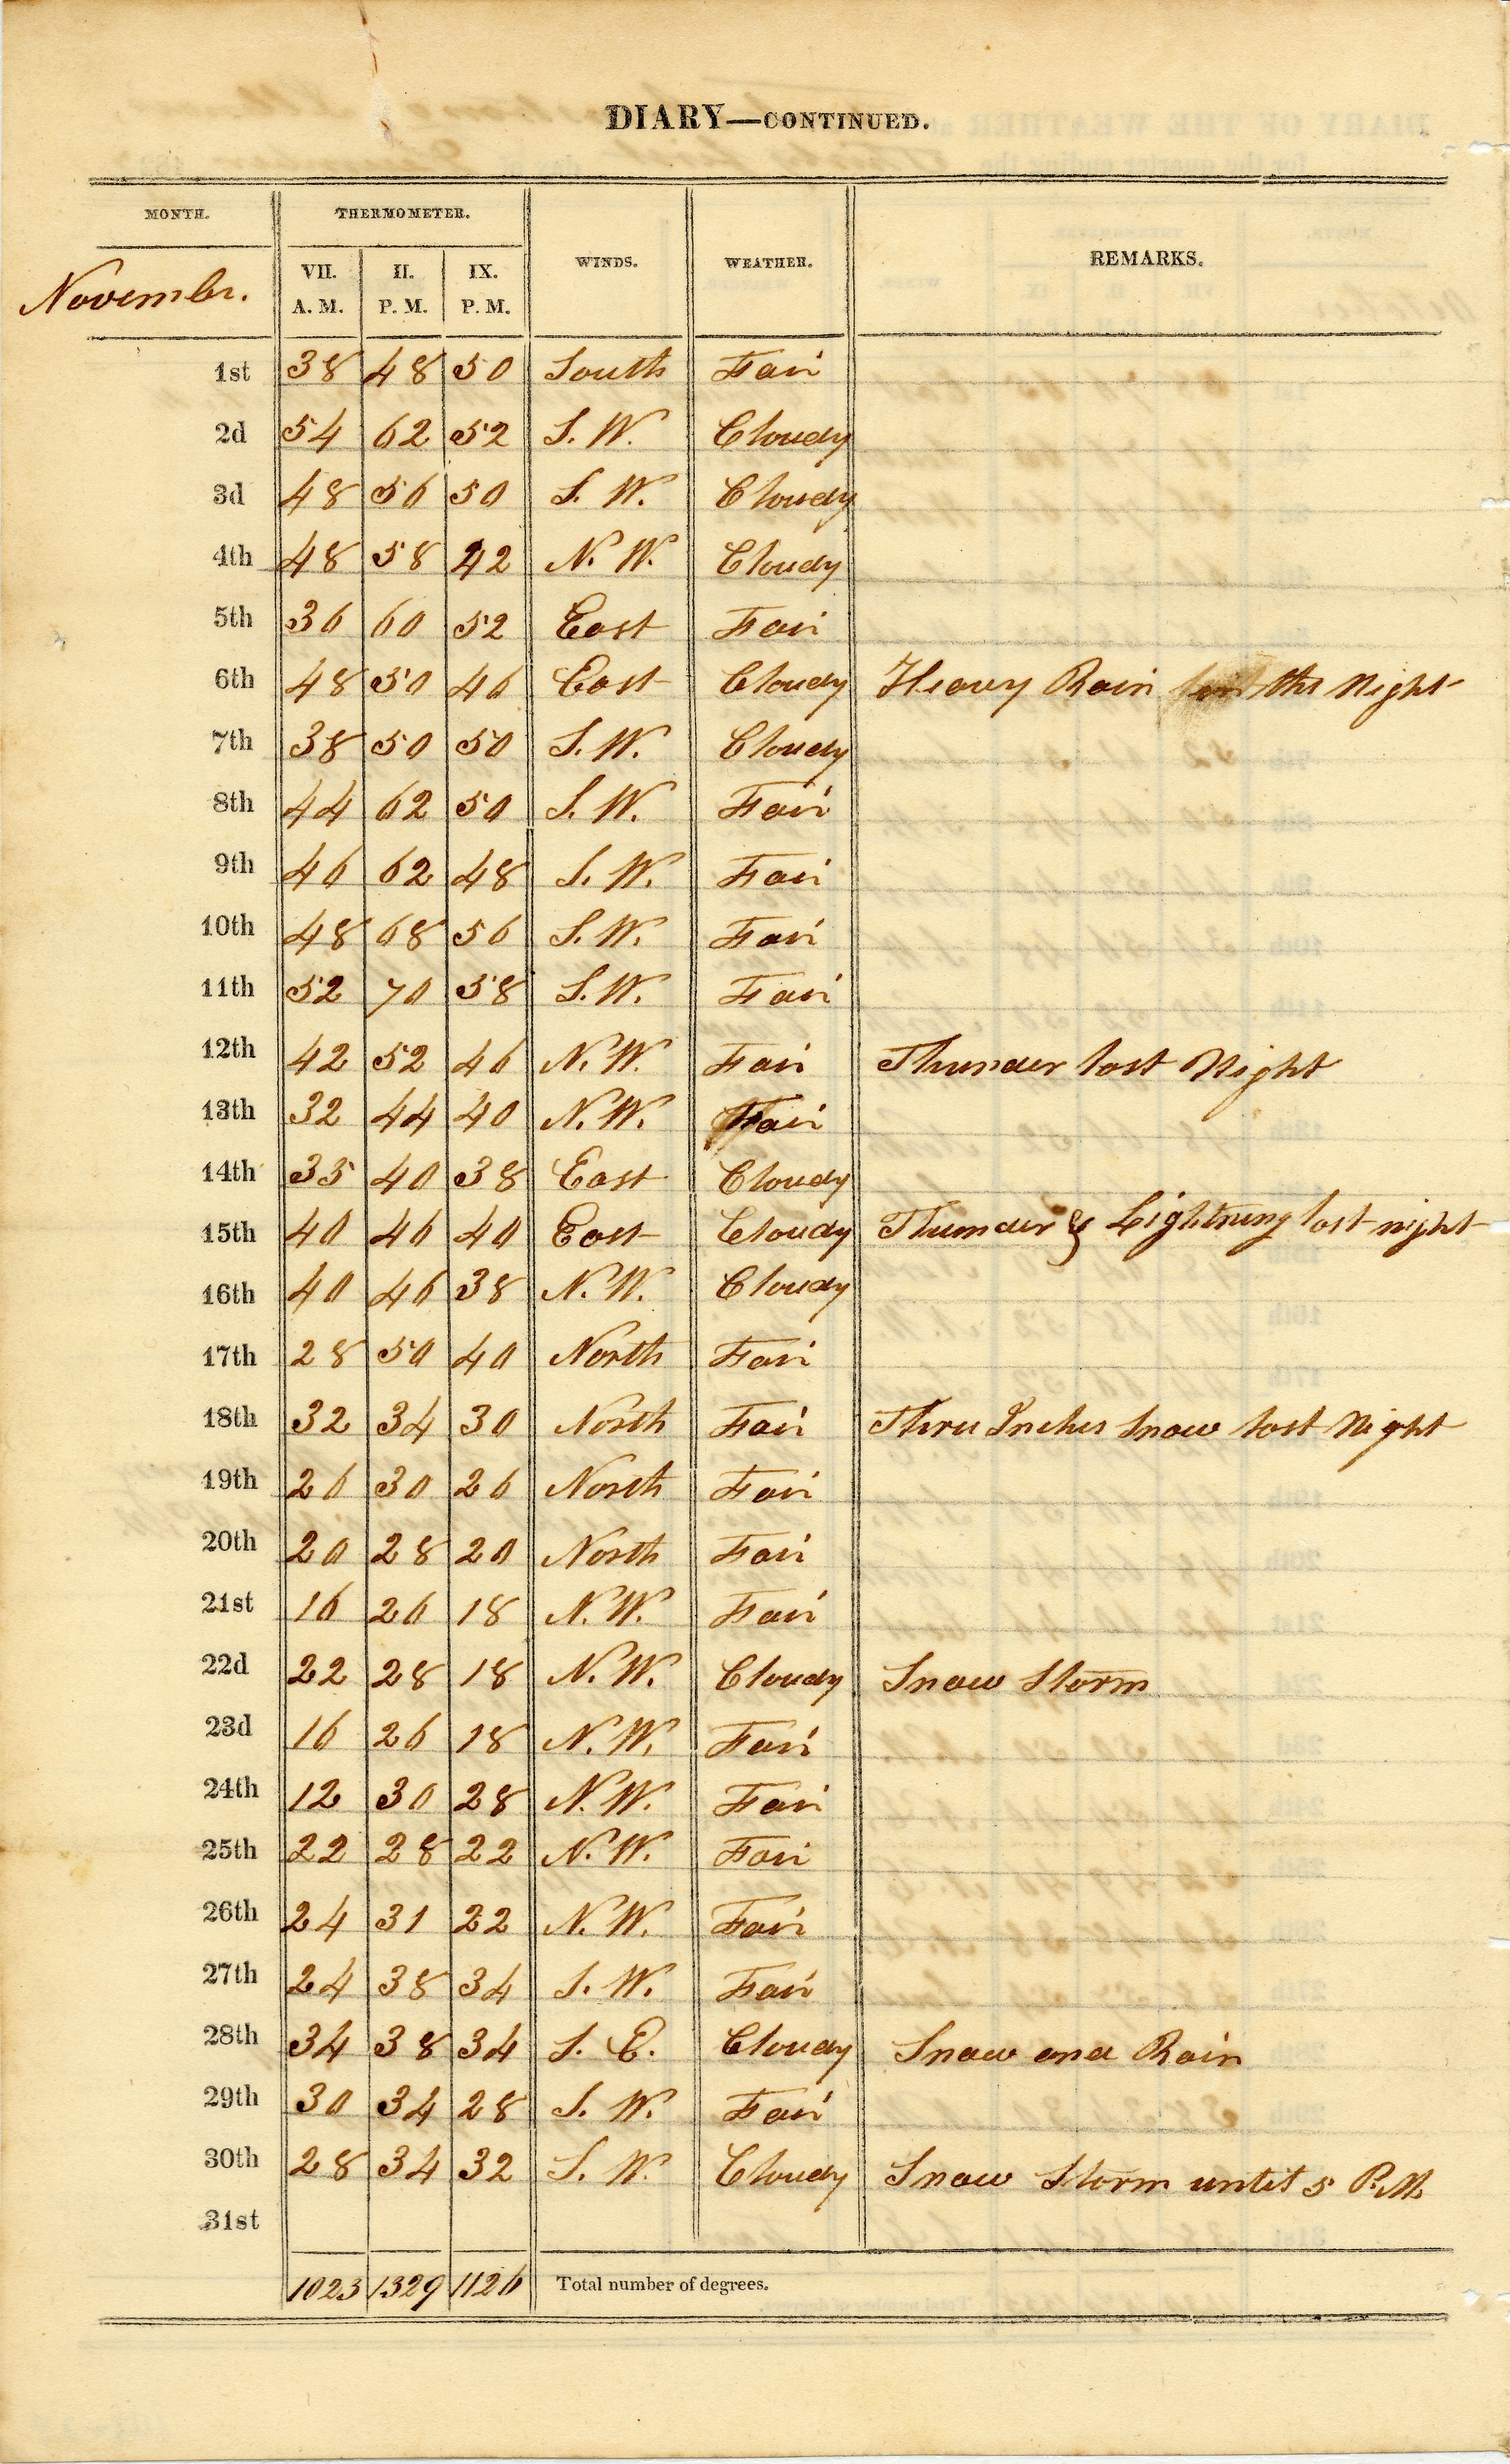 DIARY—CONTINUED.
MONTH. THERMOMETER. WINDS. WEATHER. REMARKS.
Novembr. VII. A. M. II. P. M. IX. P. M.
1st 38 48 50 South Fair
2d 54 62 52 S. W. Cloudy
3d 48 56 50 S. W. Cloudy
4th 48 58 42 N. W. Cloudy
5th 36 60 52 East Fair
6th 48 50 46 East Cloudy Heavy Rain this Night
7th 38 50 50 S. W. Cloudy
8th 44 62 50 S. W. Fair
9th 46 62 48 S. W. Fair
10th 48 68 56 S. W. Fair
11th 52 70 58 S. W. Fair
12th 42 52 46 N. W. Fair Thunder last Night
13th 32 44 40 N. W. Fair
14th 35 40 38 East Cloudy
15th 40 46 40 East Cloudy Thunder & Lightning last night
16th 40 46 38 N. W. Cloudy
17th 28 50 40 North Fair
18th 32 34 30 North Fair Three Inches Snow last Night
19th 26 30 26 North Fair
20th 20 28 20 North Fair
21st 16 26 18 N. W. Fair
22d 22 28 18 N. W. Cloudy Snow Storm
23d 16 26 18 N. W. Fair
24th 12 30 28 N. W. Fair
25th 22 28 22 N. W. Fair
26th 24 31 22 N. W. Fair
27th 24 38 34 S. W. Fair
28th 34 38 34 S. E. Cloudy Snow and Rain
29th 30 34 28 S. W. Fair
30th 28 34 32 S. W. Cloudy Snow Storm until 5 P.M.
31st
1023 1329 1126 Total number of degrees.